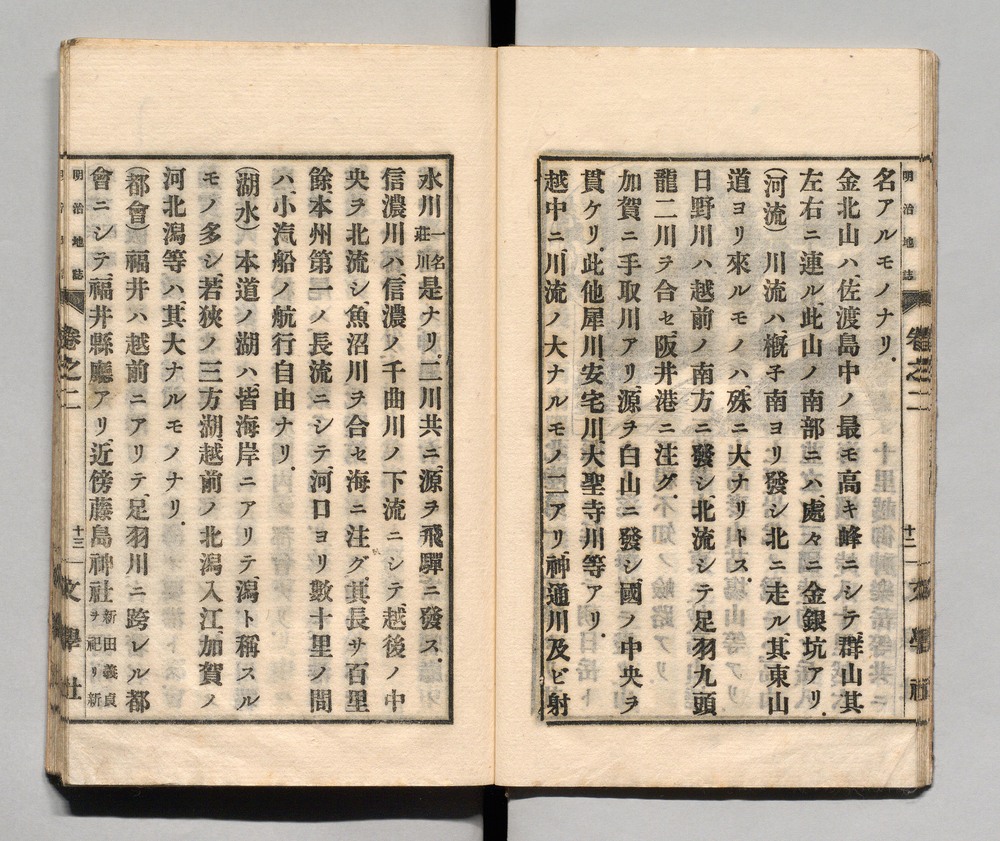 明治地誌 卷之二 十二 文學社
名アルモノナリ.
金北山ハ、佐渡島中ノ最モ高キ峰ニシテ、群山其
左右ニ連ル、此山ノ南部ニハ、處々ニ金銀坑アリ.
(河流) 川流ハ、槪子南ヨリ發シ北ニ走ル、其東山
道ヨリ來ルモノハ、殊ニ大ナリトス.
日野川ハ越前ノ南方ニ發シ、北流シテ足羽九頭
龍二川ヲ合セ、阪井港ニ注グ.
加賀ニ手取川アリ、源ヲ白山ニ發シ、國ノ中央ヲ
貫ケリ、此他犀川、安宅川、大聖寺川等アリ.
越中ニ、川流ノ大ナルモノ二アリ、神通川及ビ射
水川一名莊川是ナリ、二川共ニ、源ヲ飛驒ニ發ス.
信濃川ハ、信濃ノ千曲川ノ下流ニシテ、越後ノ中
央ヲ北流シ、魚沼川ヲ合セ海ニ注グ、其長サ百里
餘、本州第一ノ長流ニシテ、河口ヨリ數十里ノ間
ハ、小汽船ノ航行自由ナリ.
(湖水) 本道ノ湖ハ、皆海岸ニアリテ、潟ト稱スル
モノ多シ、若狹ノ三方湖、越前ノ北潟入江、加賀ノ
河北潟等ハ、其大ナルモノナリ.
(都會) 福井ハ越前ニアリテ、足羽川ニ跨レル都
會ニシテ、福井縣廳アリ、近傍藤島神社新田義貞ヲ祀リ新
明治地誌 卷之二 十三 文學社